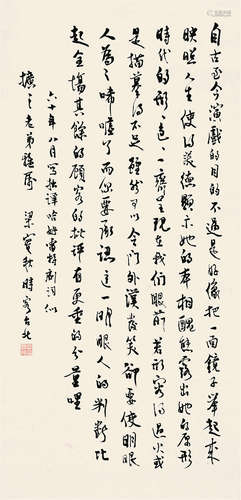 自古至今演戲的目的不過是好像把一面鏡子舉起來
映照人生使得美德顯示她的本相醜態露出她的原形
時代的形〻色〻一齊呈現在我們眼前若形容得過火或
是描摹得不足雖然可以令門外漢發笑卻要使明眼
人為之唏噓了而你要承認這一明眼人的判斷比
起全場其餘的顧客的批評有更重的分量哩
六十年八月寫拙譯哈姆雷特劇詞似
擴之老弟雅屬 梁實秋時客台北